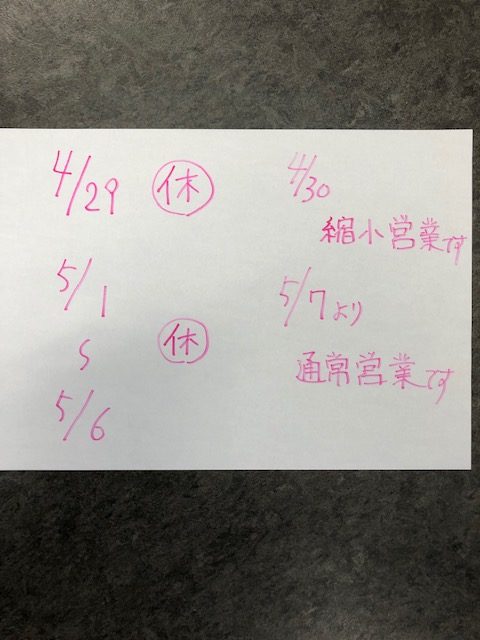 4/29 ㊡
5/1
〜
5/6
㊡
4/30
縮小営業です
5/7より
通常営業です